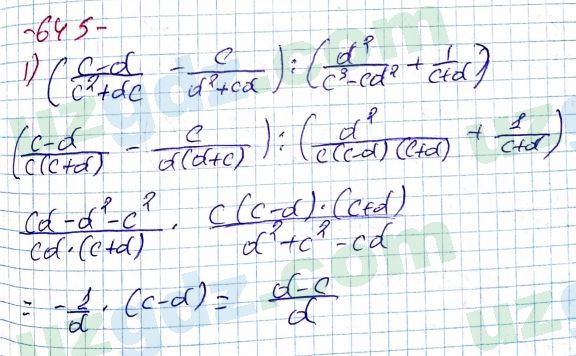 -645-
1) ( (c-d)/(c²+dc) - c/(d²+cd) ) : ( d²/(c³-cd²) + 1/(c+d) )
( (c-d)/(c(c+d)) - c/(d(d+c)) ) : ( d²/(c(c-d)(c+d)) + 1/(c+d) )
(cd-d²-c²)/(cd·(c+d)) · (c(c-d)·(c+d))/(d²+c²-cd)
= -1/d · (c-d) = (d-c)/d
uzgdz.com